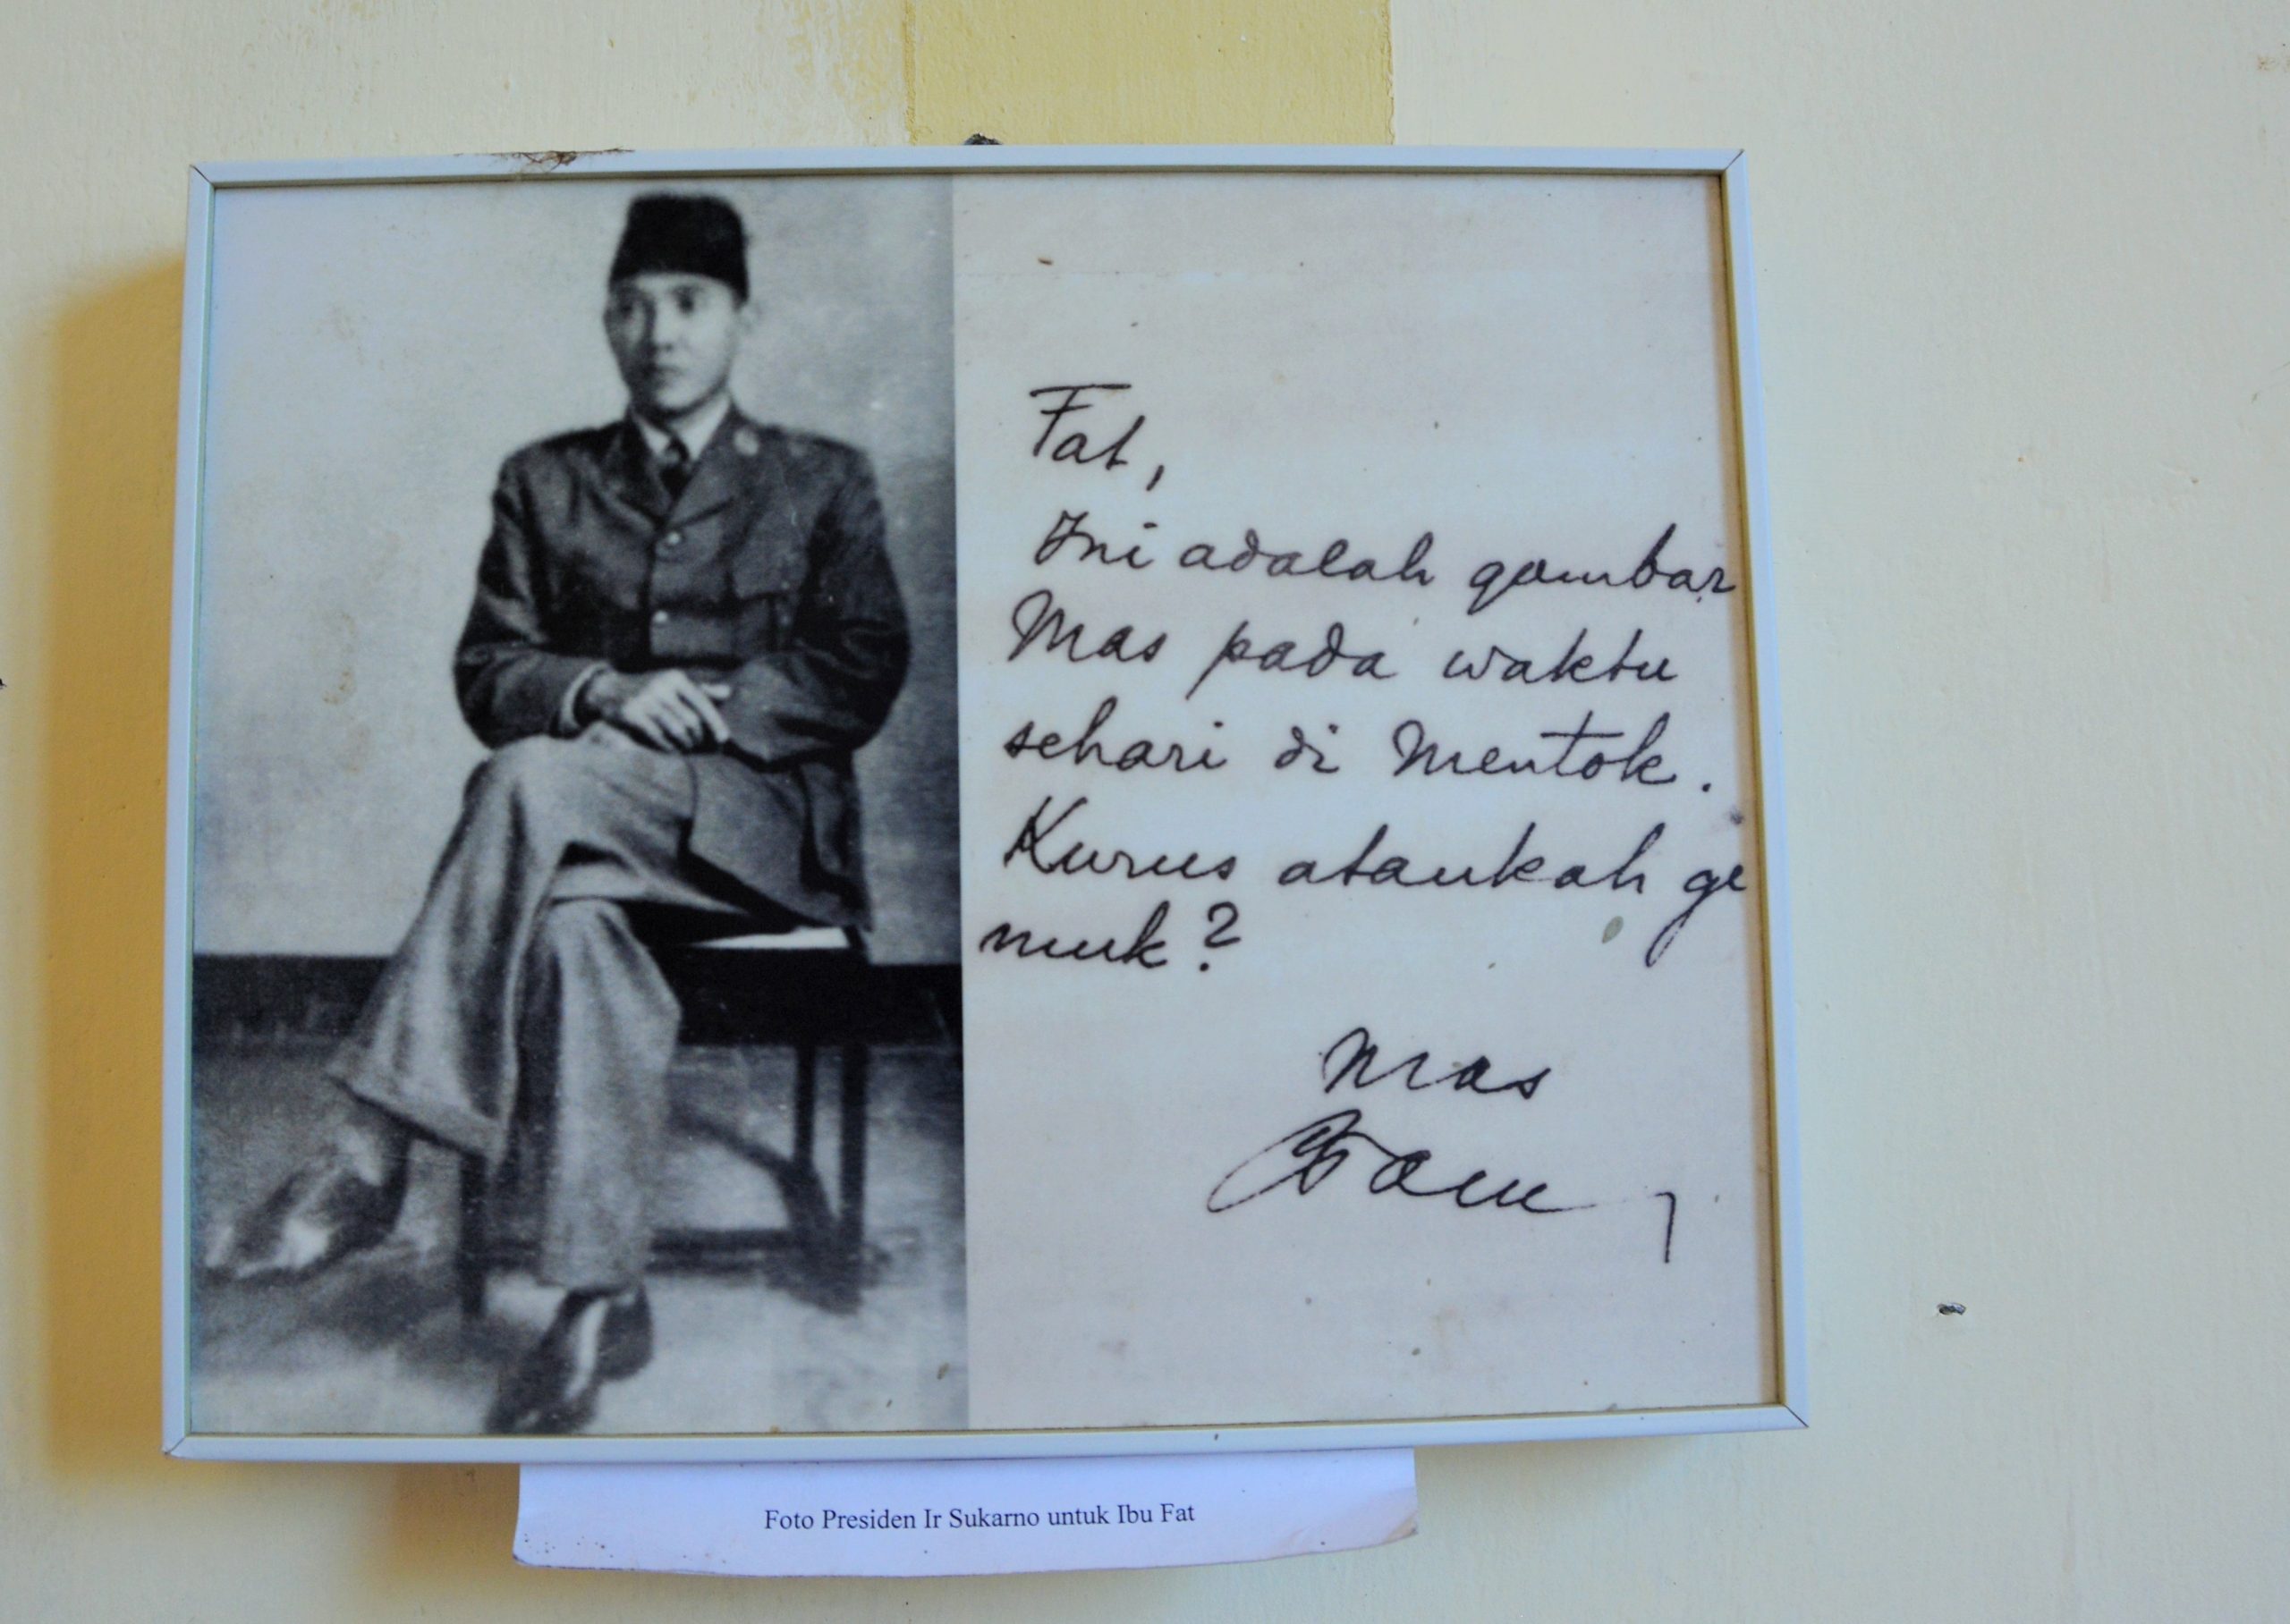 Fat,
Ini adalah gambar
Mas pada waktu
sehari di Mentok.
Kurus ataukah ge
muk?
Mas
Foto Presiden Ir Sukarno untuk Ibu Fat